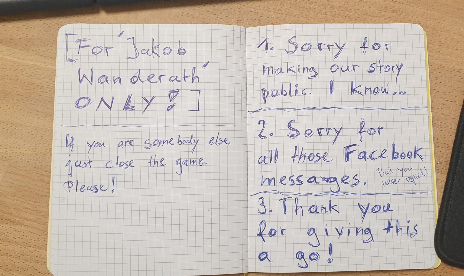 [For Jakob
Wanderath
ONLY!]
If you are somebody else,
just close the game.
Please!
1. Sorry for
making our story
public. I know...
2. Sorry for
all those Facebook
messages.
3. Thank you
for giving this
a go!